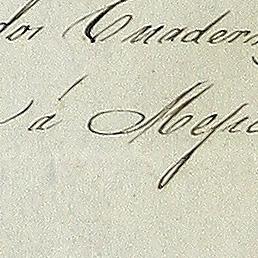 dos Cuadern
á Mejic